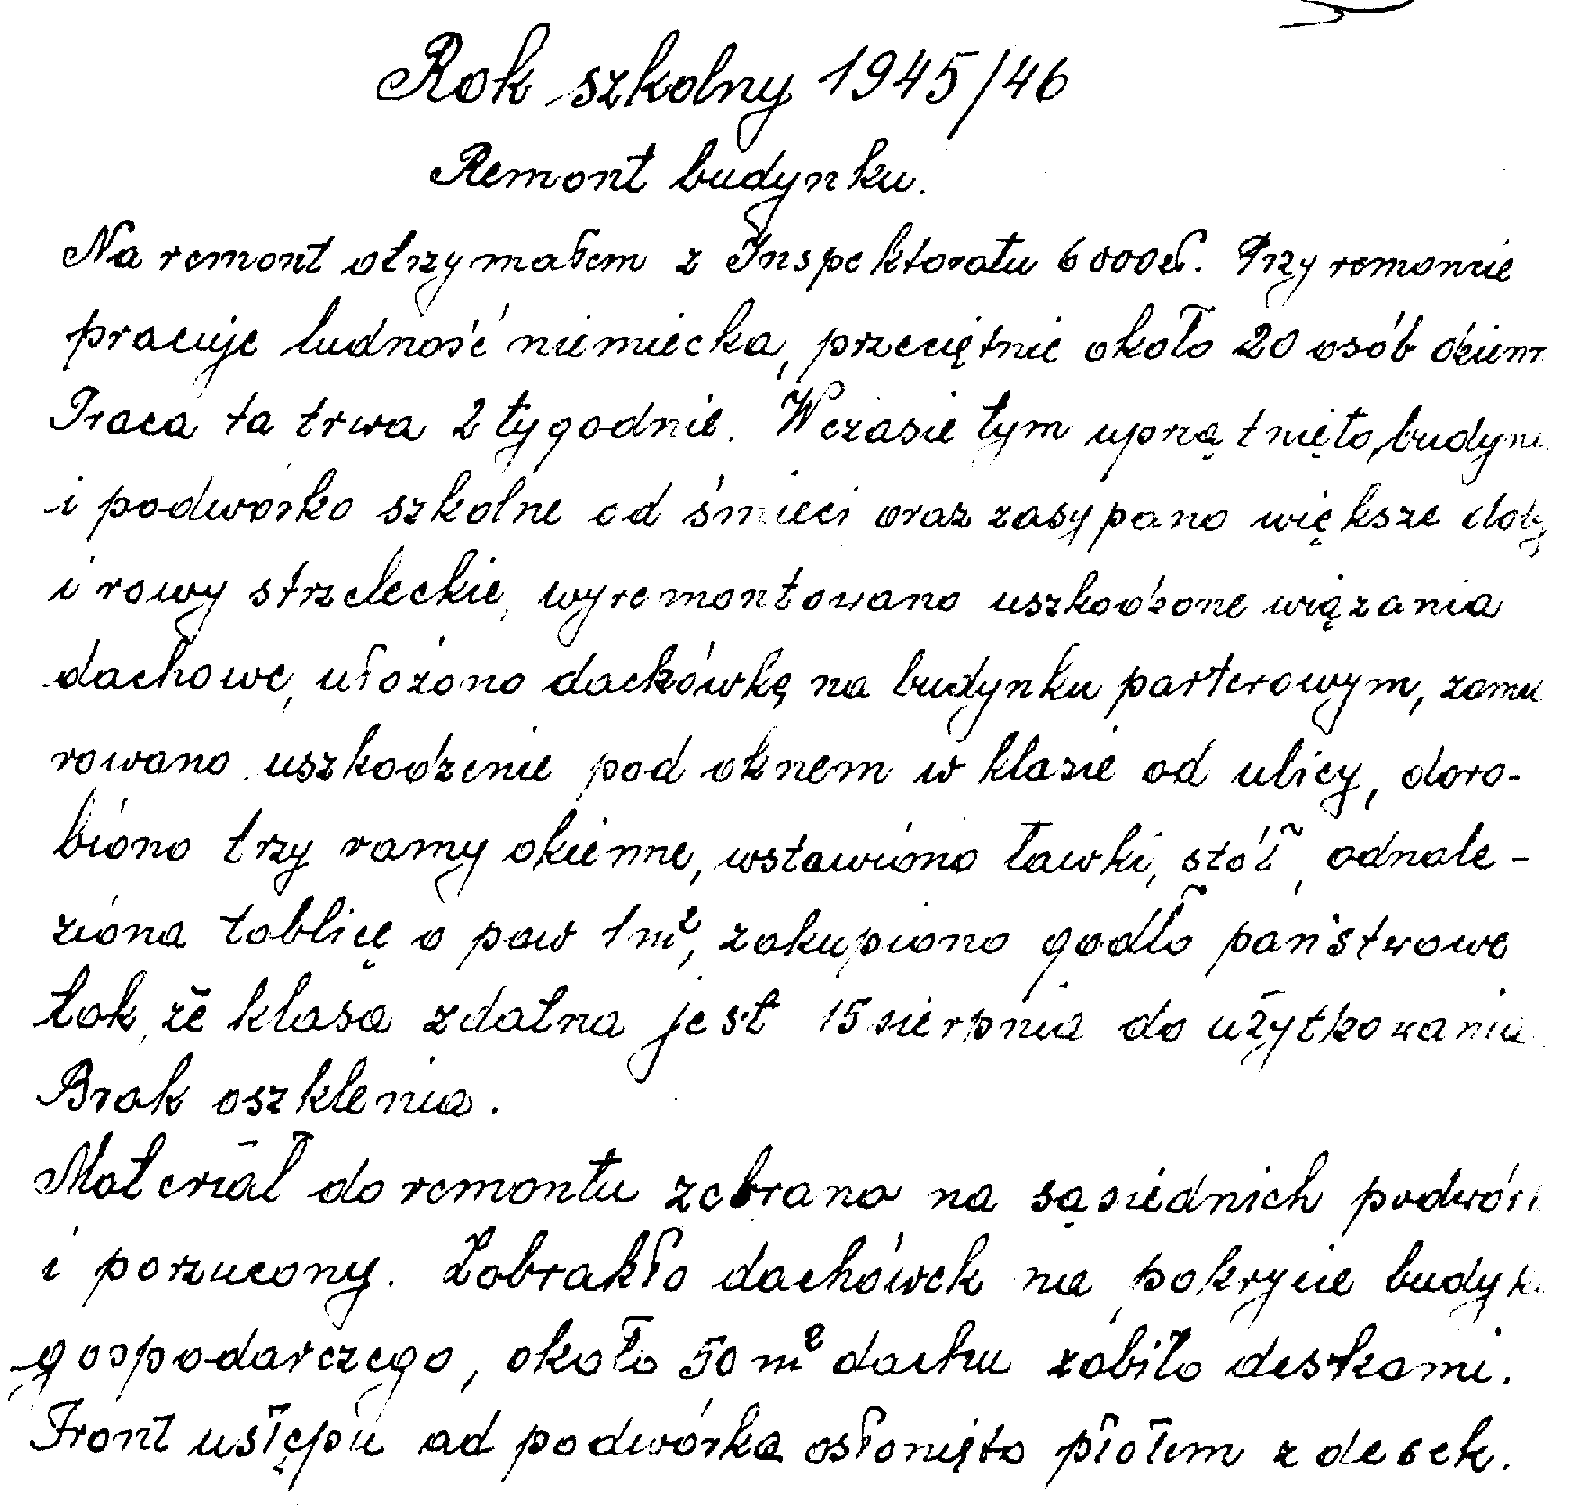 Rok szkolny 1945/46
Remont budynku.
Na remont otrzymałem z Inspektoratu 6000zł. Przy remoncie
pracuje ludność niemiecka, przeciętnie około 20 osób dzienn
Praca ta trwa 2 tygodnie. W czasie tym uprzątnięto budyn
i podwórko szkolne od śmieci oraz zasypano większe doły
i rowy strzeleckie, wyremontowano uszkodzone wiązania
dachowe, ułożono dachówkę na budynku parterowym, zamu
rowano uszkodzenie pod oknem w klasie od ulicy, doro-
biono trzy ramy okienne, wstawiono ławki, stół, odnale-
ziona tablicę o pow 1m², zakupiono godło państwowe
tak, że klasa zdatna jest 15 sierpnia do użytkowania
Brak oszklenia.
Materiał do remontu zebrano na sąsiednich podwór
i porzucony. Zabrakło dachówek na pokrycie budyn
gospodarczego, około 50 m² dachu zabito deskami.
Front ustępu od podwórka osłonięto płotem z desek.